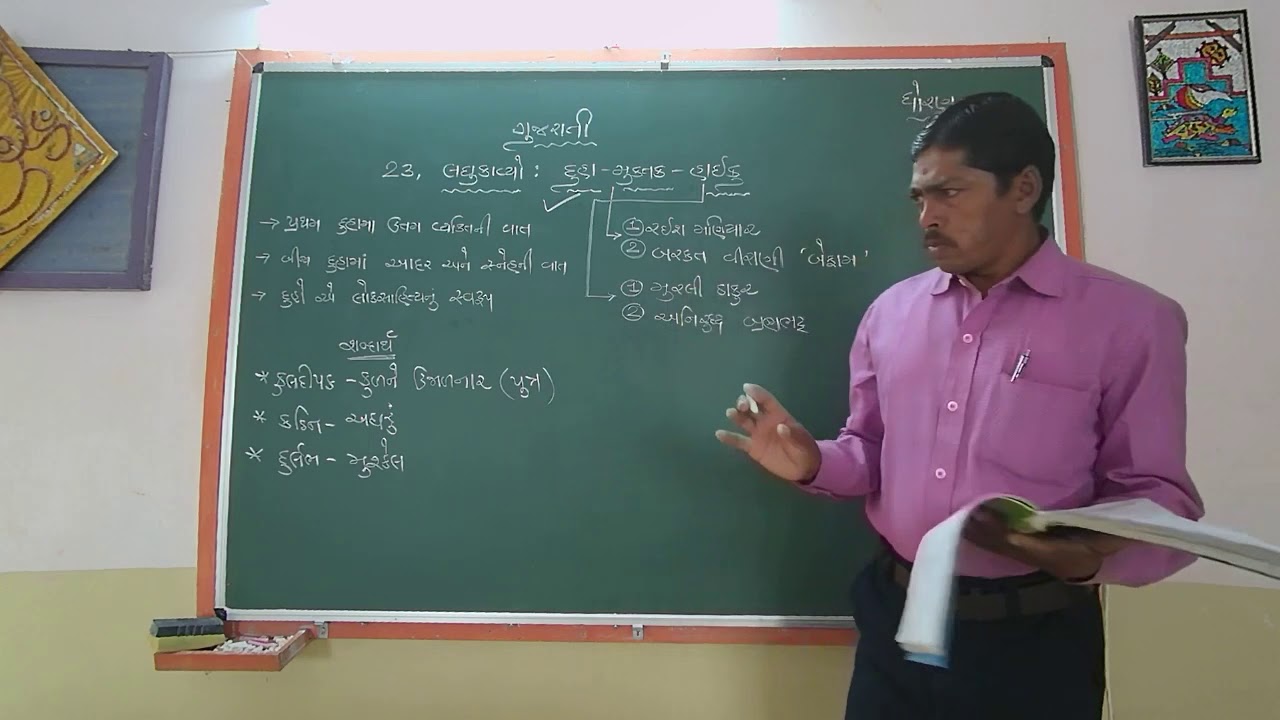 ધોરણ
ગુજરાતી
23, લઘુકાવ્યો : દુહા - મુક્તક - હાઈકુ
→ પ્રથમ દુહામા ઉત્તમ વ્યક્તિની વાત
→ બીજા દુહામાં આદર અને સ્નેહની વાત
→ દુહો એ લોકસાહિત્યનું સ્વરૂપ
① રઈશ મણિયાર
② બરકત વીરાણી 'બેફામ'
① મુરલી ઠાકુર
② અનિરુદ્ધ બ્રહ્મભટ્ટ
શબ્દાર્થ
* કુલદીપક - કુળને ઉજાળનાર (પુત્ર)
* કઠિન - અઘરું
* દુર્લભ - મુશ્કેલ